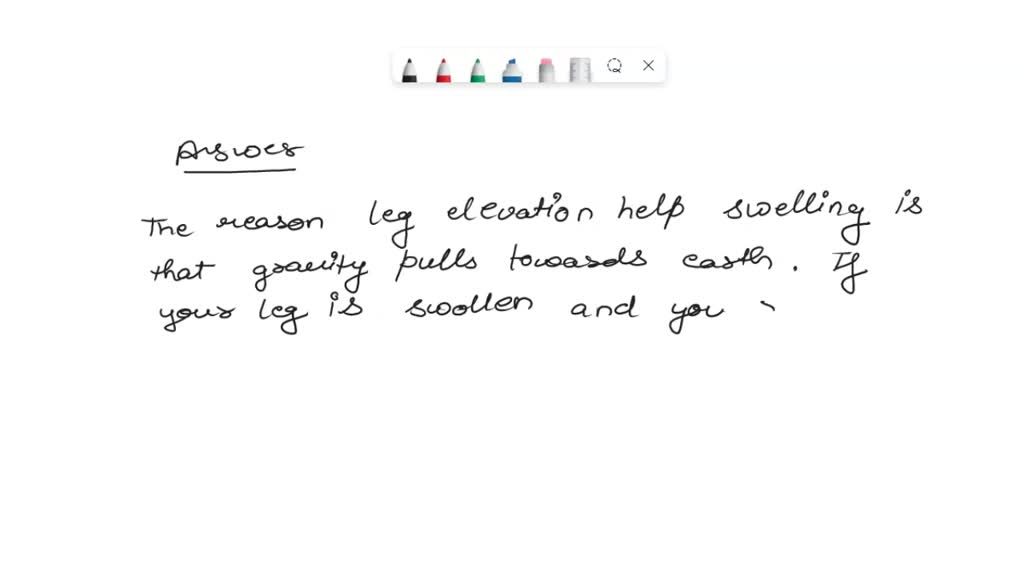 Answer
The reason leg elevation help swelling is
that gravity pulls towards earth. If
your leg is swollen and you